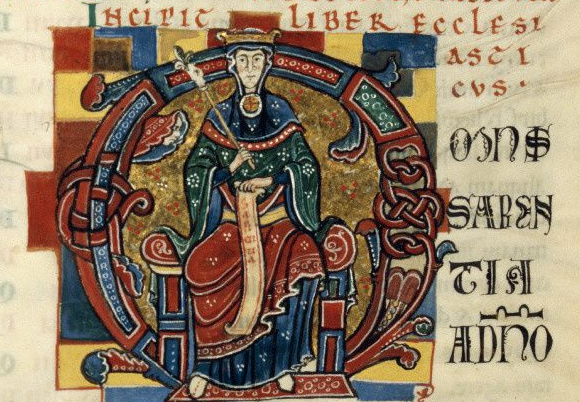 INCIPIT LIBER ECCLESI
ASTI
CVS ·
OMNS
SAPIEN
TIA
A DNO